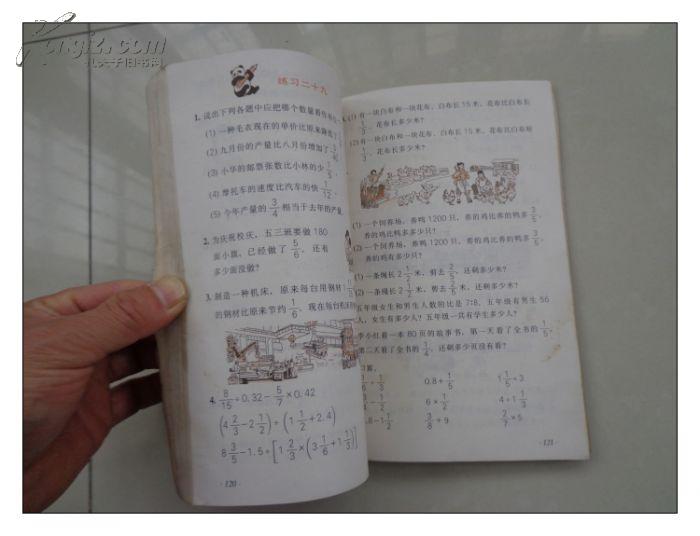 Kongfz.com
孔夫子旧书网
练习二十九
1. 说出下列各题中应把哪个数量看作
(1) 一种毛衣现在的单价比原来降低了
(2) 九月份的产量比八月份增加了
(3) 小华的邮票张数比小林的少 1/5 。
(4) 摩托车的速度比汽车的快 1/12 。
(5) 今年产量的 3/4 相当于去年的产量
2. 为庆祝校庆，五三班要做 180
面小旗，已经做了 5/6 ，还有
多少面没做？
3. 制造一种机床，原来每台用钢材
的钢材比原来节约 1/6 ，现在每台机床
4. 8/15 ÷0.32－ 5/7 ×0.42
(4 2/3 －2 1/2 ) ÷ (1 1/2 ＋2.4)
8 3/5 －1.5÷[1 2/3 ×(3 1/6 ＋1 1/3 )]
· 120 ·
(1) 有一块白布和一块花布，白布长 15 米，花布比白布长
1/3 ，花布长多少米？
(2) 有一块白布和一块花布，白布长 15 米，花布比白布短
1/3 ，花布长多少米？
(1) 一个饲养场，养鸭 1200 只，养的鸡比养的鸭多 3/5 ，
养的鸡比鸭多多少只？
(2) 一个饲养场，养鸭 1200 只，养的鸡比养的鸭多 3/5 ，
养的鸡有多少只？
(1) 一条绳长 2 1/2 米，剪去 2/5 ，还剩多少米？
(2) 一条绳长 2 1/2 米，剪去 2/5 米，还剩多少米？
五年级女生和男生人数的比是 7:8，五年级有男生 56
人，女生有多少人？五年级一共有学生多少人？
李小红看一本 80 页的故事书，第一天看了全书的 1/5 ，
第二天看了全书的 1/4 ，还剩多少页没有看？
算。
0.8＋ 1/5
1 1/5 ×3
6× 1/2
4÷1 1/3
.8－1 1/2
3/8 ÷9
2/7 ×5
· 121 ·